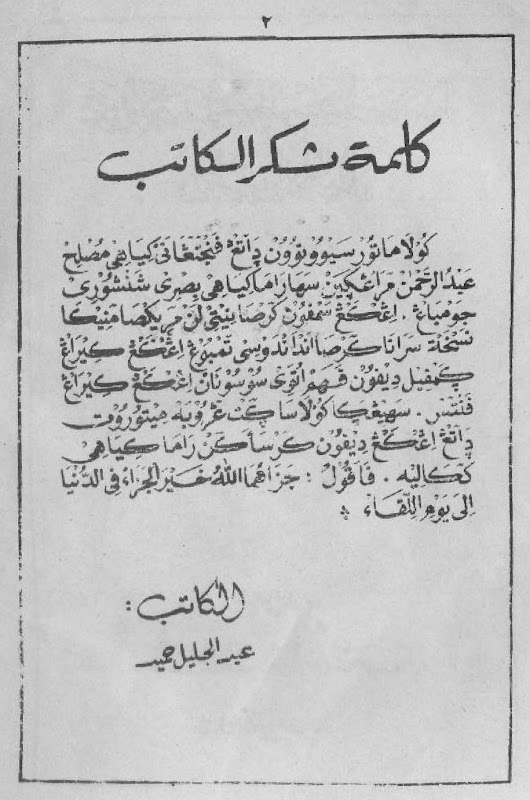 ٢
كلمة شكر الكاتب
كَوْلَا هَاتُوْرْ سَيْوُوْنُوْوُنْ دَاتَڠْ فَنْجَنَڠَانَيْ كِيَاهِيْ مُصْلِحْ
عَبْدُ الرَّحْمٰنْ مْرَاڠْڮَيْنْ سَهَا رَامَا كِيَاهِيْ بِصْرِيْ شَنْشُوْرِيْ
جَوْمْبَاڠْ، اِڠْكَڠْ سَمْفُوْنْ كَرْصَا نِيْتِيْ لَنْ مْرِيْكْصَا مَنِيْكَا
نُسْخَةْ سَرَانَا كَرْصَا اَنْدَانْدَوْسِيْ تَمْبُوْڠْ اِڠْكَڠْ كِيْرَاڠْ
ڮَمْفِيْلْ دِيْفُوْنْ فَهَمْ اُتَوِيْ سُوْسُوْنَانْ اِڠْكَڠْ كِيْرَاڠْ
فَنْتَسْ. سَهِيْڠْڮَا كَوْلَا سَاڮَتْ عَرُوْبَهْ مِيْتُوْرُوْتْ
دَاتَڠْ اِڠْكَڠْ دِيْفُوْنْ كَرْسَأَكَنْ رَامَا كِيَاهِيْ
كَكَالِيْهْ. فَاَقُوْلُ : جَزَاهُمَا اللّٰهُ خَيْرَ الْجَزَاءِ فِى الدُّنْيَا
اِلَى يَوْمِ اللِّقَاءِ
الكاتب :
عبد الجليل حميد